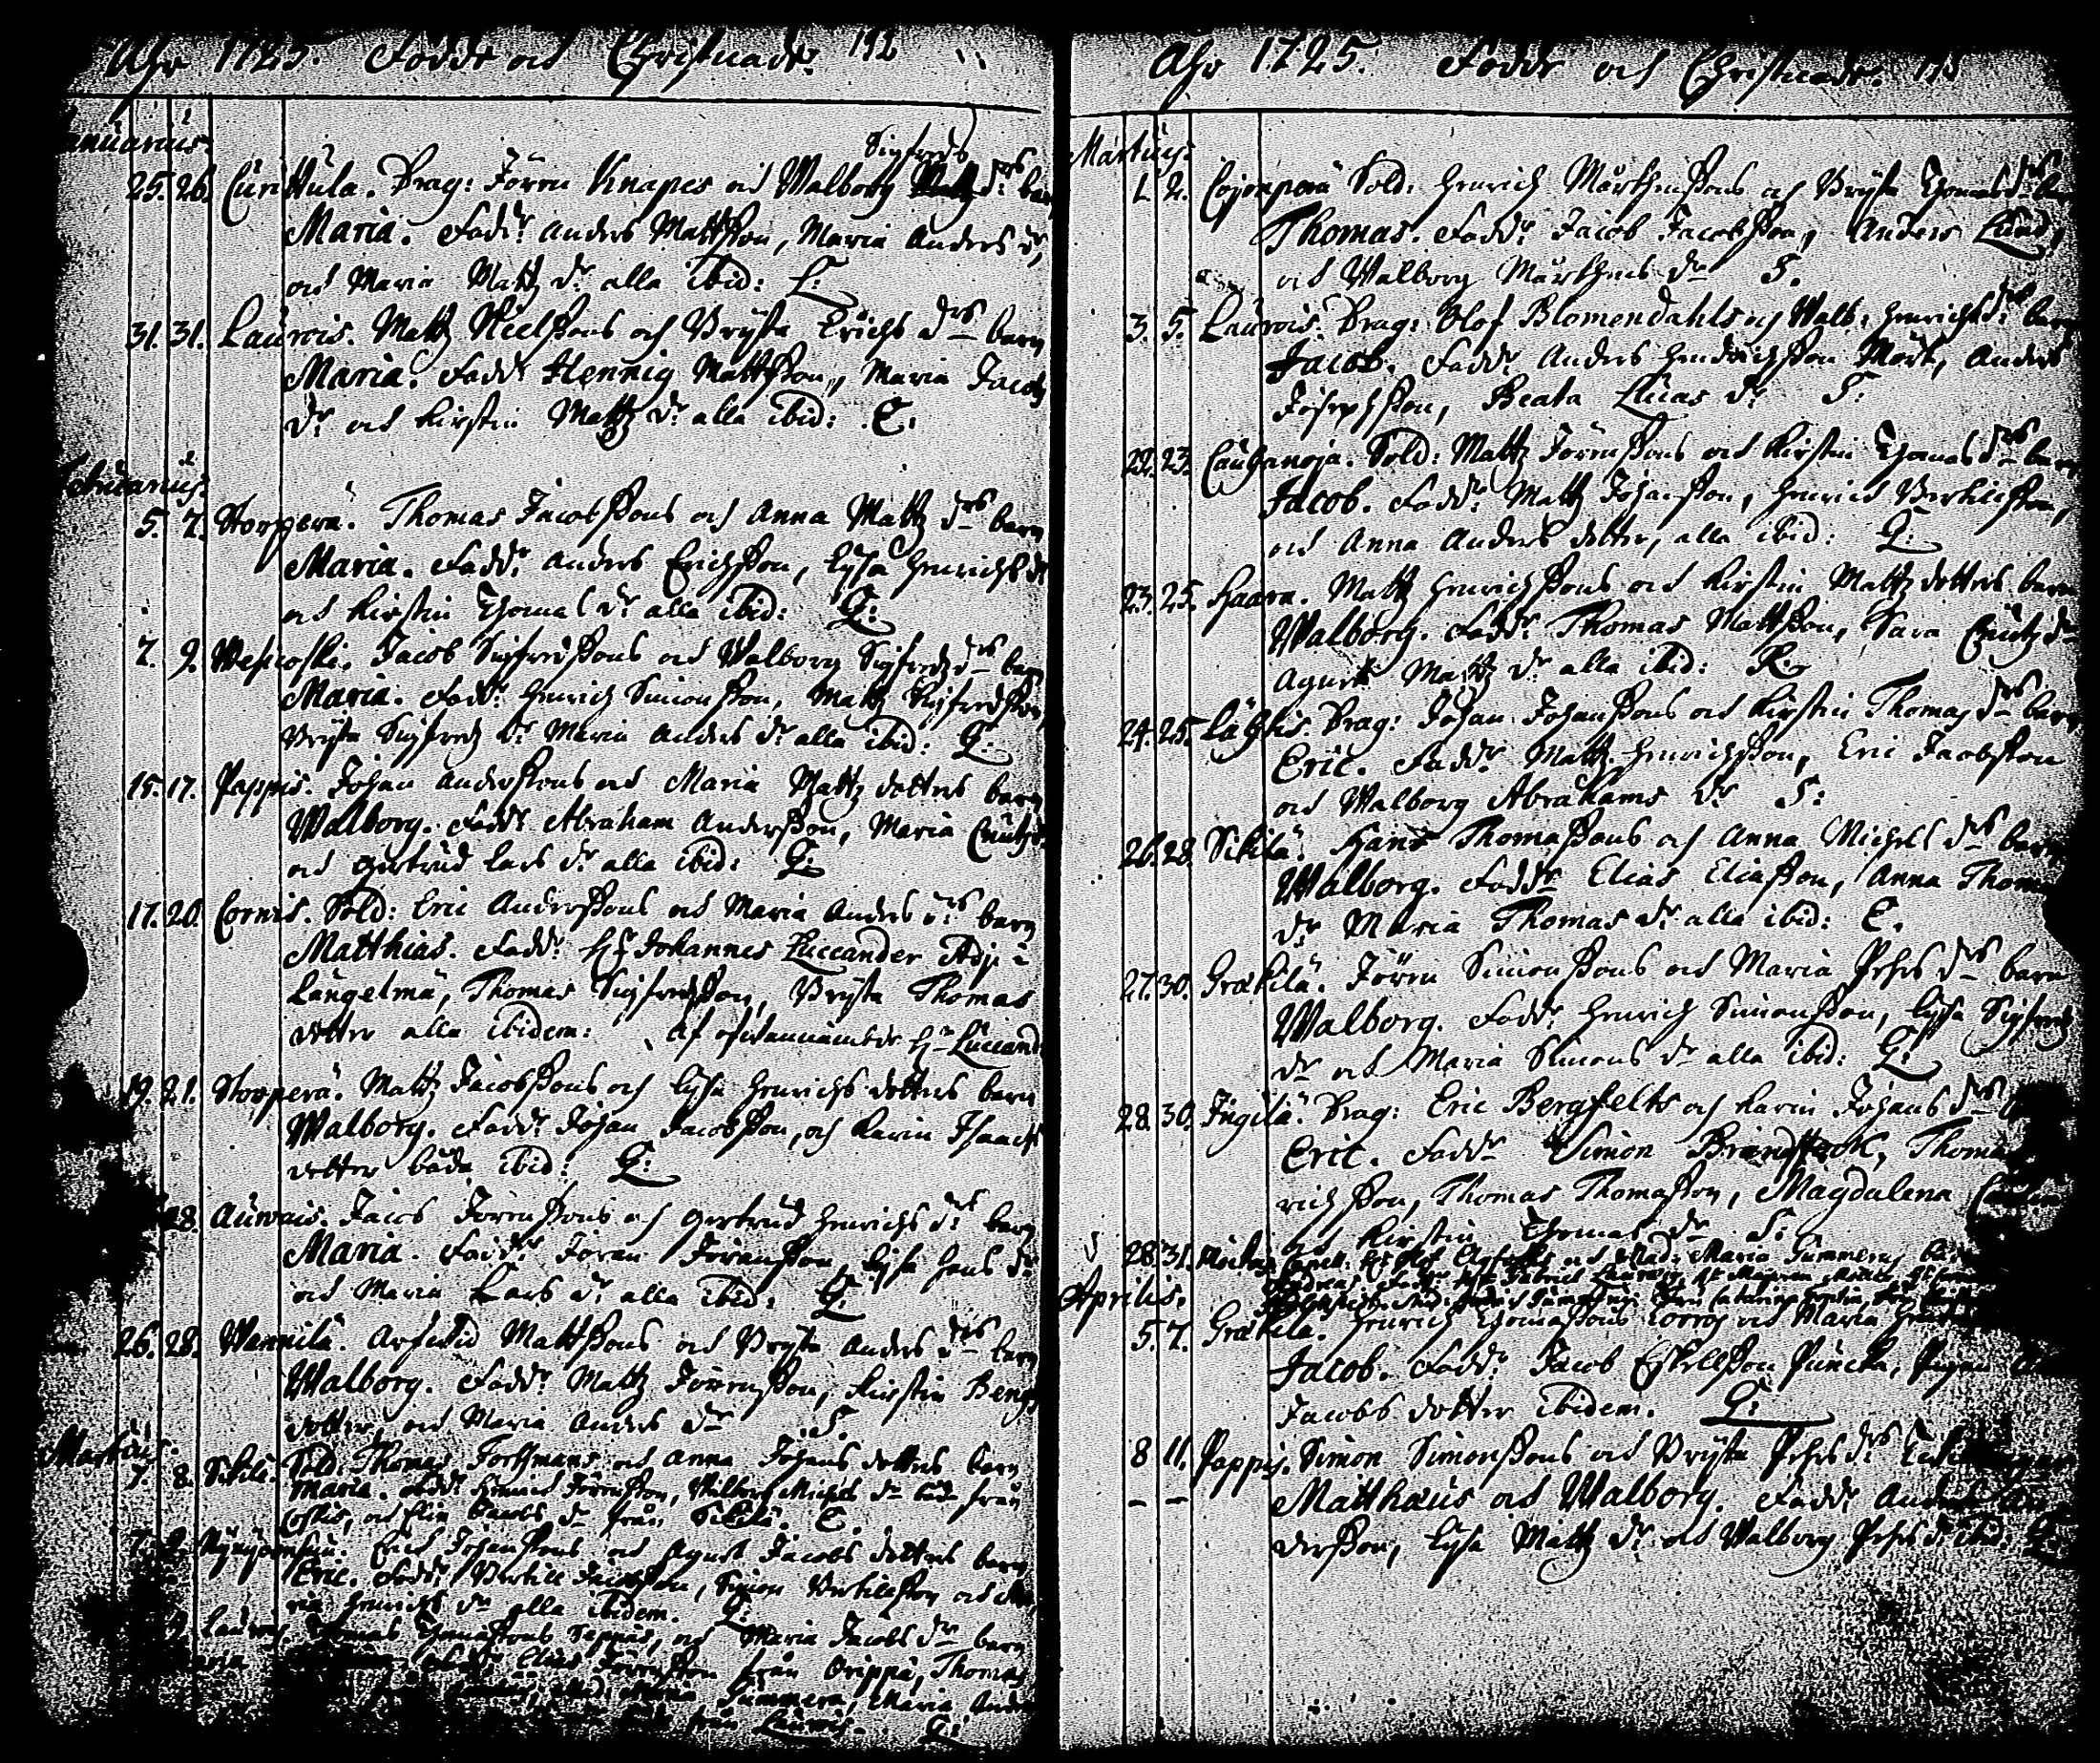 Åhr 1725. Födde och Christnade. 192
Januarius.
Sigfreds
25. 26. Curittula. Drag: Jören Knapes och Walborg drs barn
Maria. Fadd: Anders Mattsson, Maria Anders dr,
och Maria Mattz dr alla ibid:
31. 31. Laurois. Mattz Nielssons och Bryta Erichs drs barn
Maria. Fadd: Hennig Mattsson, Maria Jacobs
dr och Kirstin Mattz dr alla ibid: E.
Februarius.
5. 7. Storperä. Thomas Jacobssons och Anna Mattz drs barn
Maria. Fadd: Anders Erichsson, Lysa Henrichs dr
och Kirstin Thomas dr alla ibid: G:
7. 9. Wesicoski. Jacob Sigfredssons och Walborg Sigfredz drs barn
Maria. Fadd: Henrich Simonsson, Mattz Sigfredsson,
Bryta Sigfredz dr Maria Anders dr alla ibid: G:
15. 17. Pappis. Johan Anderssons och Maria Mattz dotters barn
Walborg. Fadd: Abraham Andersson, Maria Cnutz dr
och Gertrud Lars dr alla ibid: G:
17. 20. Cornis. Sold: Eric Anderssons och Maria Anders drs barn
Matthias. Fadd: Hr Johannes Luccander Adj: i
Längelmä, Thomas Sigfredsson, Bryta Thomas
dotter alla ibidem: Af ofvannämbde Hr Luccand:
19. 21. Storperä. Mattz Jacobssons och Lysa Henrichs dotters barn
Walborg. Fadd: Johan Jacobsson, och Karin Isaachs
dotter båda ibid: G:
28. Auvais. Jacob Jörenssons och Gertrud Henrichs drs barn
Maria. Fadd: Jören Jörensson, Lysa Hans dr
och Maria Lars dr alla ibid: G:
26. 28. Wannilä. Arfwid Mattssons och Bryta Anders drs barn
Walborg. Fadd: Mattz Jörensson, Kirstin Bengtz
dotter och Maria Anders dr S.
Martius.
7. 8. Sikilä. Sold: Thomas Forssmans och Anna Johans dotters barn
Maria. Fadd: Henrich Jörensson, Walborg Michels dr båda från
och Elin Jacobs dr från Sikilä. E.
7. 9. Erich Johanssons och Agnet Jacobs dotters barn
Eric. Fadd: Bertill Jacobsson, Simon Bertillsson och Ma
ria Henrichs dr alla ibidem. G:
Laurois. Thomas Thomassons och Maria Jacobs drs barn
Maria Fadd: Elias Jörensson från Orippä, Thomas
Mad: Maria Gummera, Maria Anders
från Laurois. G:
Åhr 1725. Födde och Christnade.
Martius.
1. 2. Cojonperä Sold: Henrich Mårthenssons och Bryta Thomas drs barn
Thomas. Fadd: Jacob Jacobsson, Anders Lund,
och Walborg Mårthens dr S.
3. 5. Laurois. Drag: Olof Blomendahls och Walb: Henrichs drs barn
Jacob. Fadd: Anders Hendrichsson Mört, Anders
Josephsson, Beata Lucas dr S:
22. 23. Cauhanoja. Sold: Mattz Jörenssons och Kirstin Thomas drs barn
Jacob. Fadd: Mattz Johansson, Henrich Bertillsson,
och Anna Anders dotter, alla ibid: G:
23. 25. Haara. Mattz Henrichssons och Kirstin Mattz dotters barn
Walborg. Fadd: Thomas Mattsson, Sara Cnutz dr
Agnet Mattz dr alla ibid:
24. 25. Lächtis. Drag: Johan Johanssons och Kirstin Thomas drs barn
Eric. Fadd: Mattz Henrichsson, Eric Jacobsson
och Walborg Abrahams dr S:
26. 28. Sikilä. Hans Thomassons och Anna Michels drs barn
Walborg. Fadd: Elias Eliasson, Anna Thomas
dr Maria Thomas dr alla ibid: E.
27. 30. Grækilä. Jören Simonssons och Maria Pehrs drs barn
Walborg. Fadd: Henrich Simonsson, Lysa Sigfredz
dr och Maria Simons dr alla ibid: G:
28. 30. Ingilä. Drag: Eric Bergfelts och Karin Johans drs
Eric. Fadd: Simon Thomas
richsson, Thomas Thomasson, Magdalena
och Kirstin Thomas dr S:
28. 31. Capell: Hr Olof och Mad: Maria Gummerus
Andreas. Fadd:
Aprilis.
5. 7. Grækilä. Henrich Thomassons och Maria
Jacob. Fadd: Jacob Eskellsson Puncka,
Jacobs dotter ibidem. G:
8 11. Pappis. Simon Simonssons och Bryta Pehrs drs
– – Matthæus och Walborg. Fadd: Anders An
dersson, Lysa Mattz dr och Walborg Pehrs dr ibid: G: